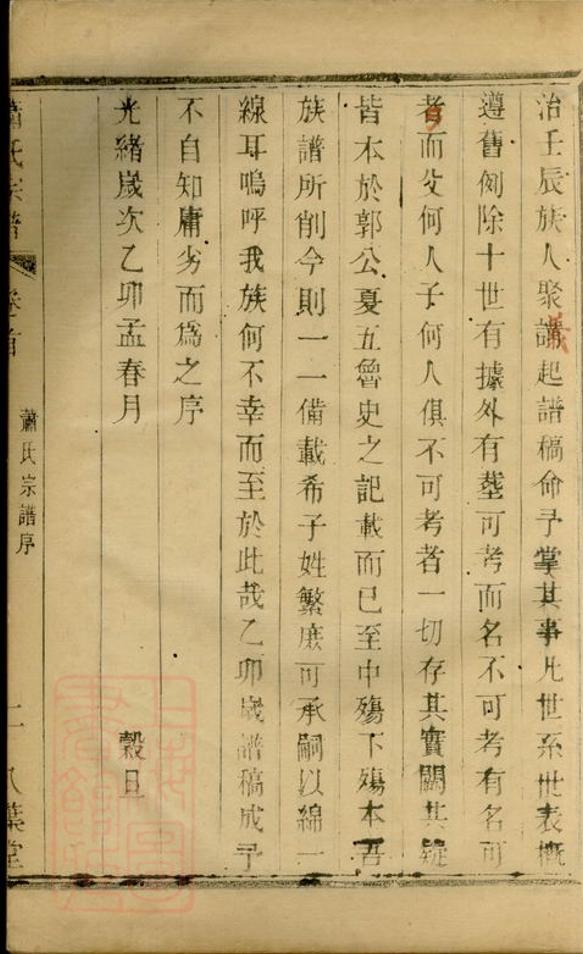 治壬辰族人聚議起譜稿命予掌其事凡世系世表概
遵舊例除十世有據外有塟可考而名不可考有名可
考而父何人子何人俱不可考者一切存其實闕其疑
皆本於郭公夏五魯史之記載而已至中殤下殤本吾
族譜所削今則一一備載希子姓繁庶可承嗣以綿一
線耳嗚呼我族何不幸而至於此哉乙卯歲譜稿成予
不自知庸劣而為之序
光緒歲次乙卯孟春月 穀旦
蕭氏宗譜 卷首 蕭氏宗譜序 二 八葉堂